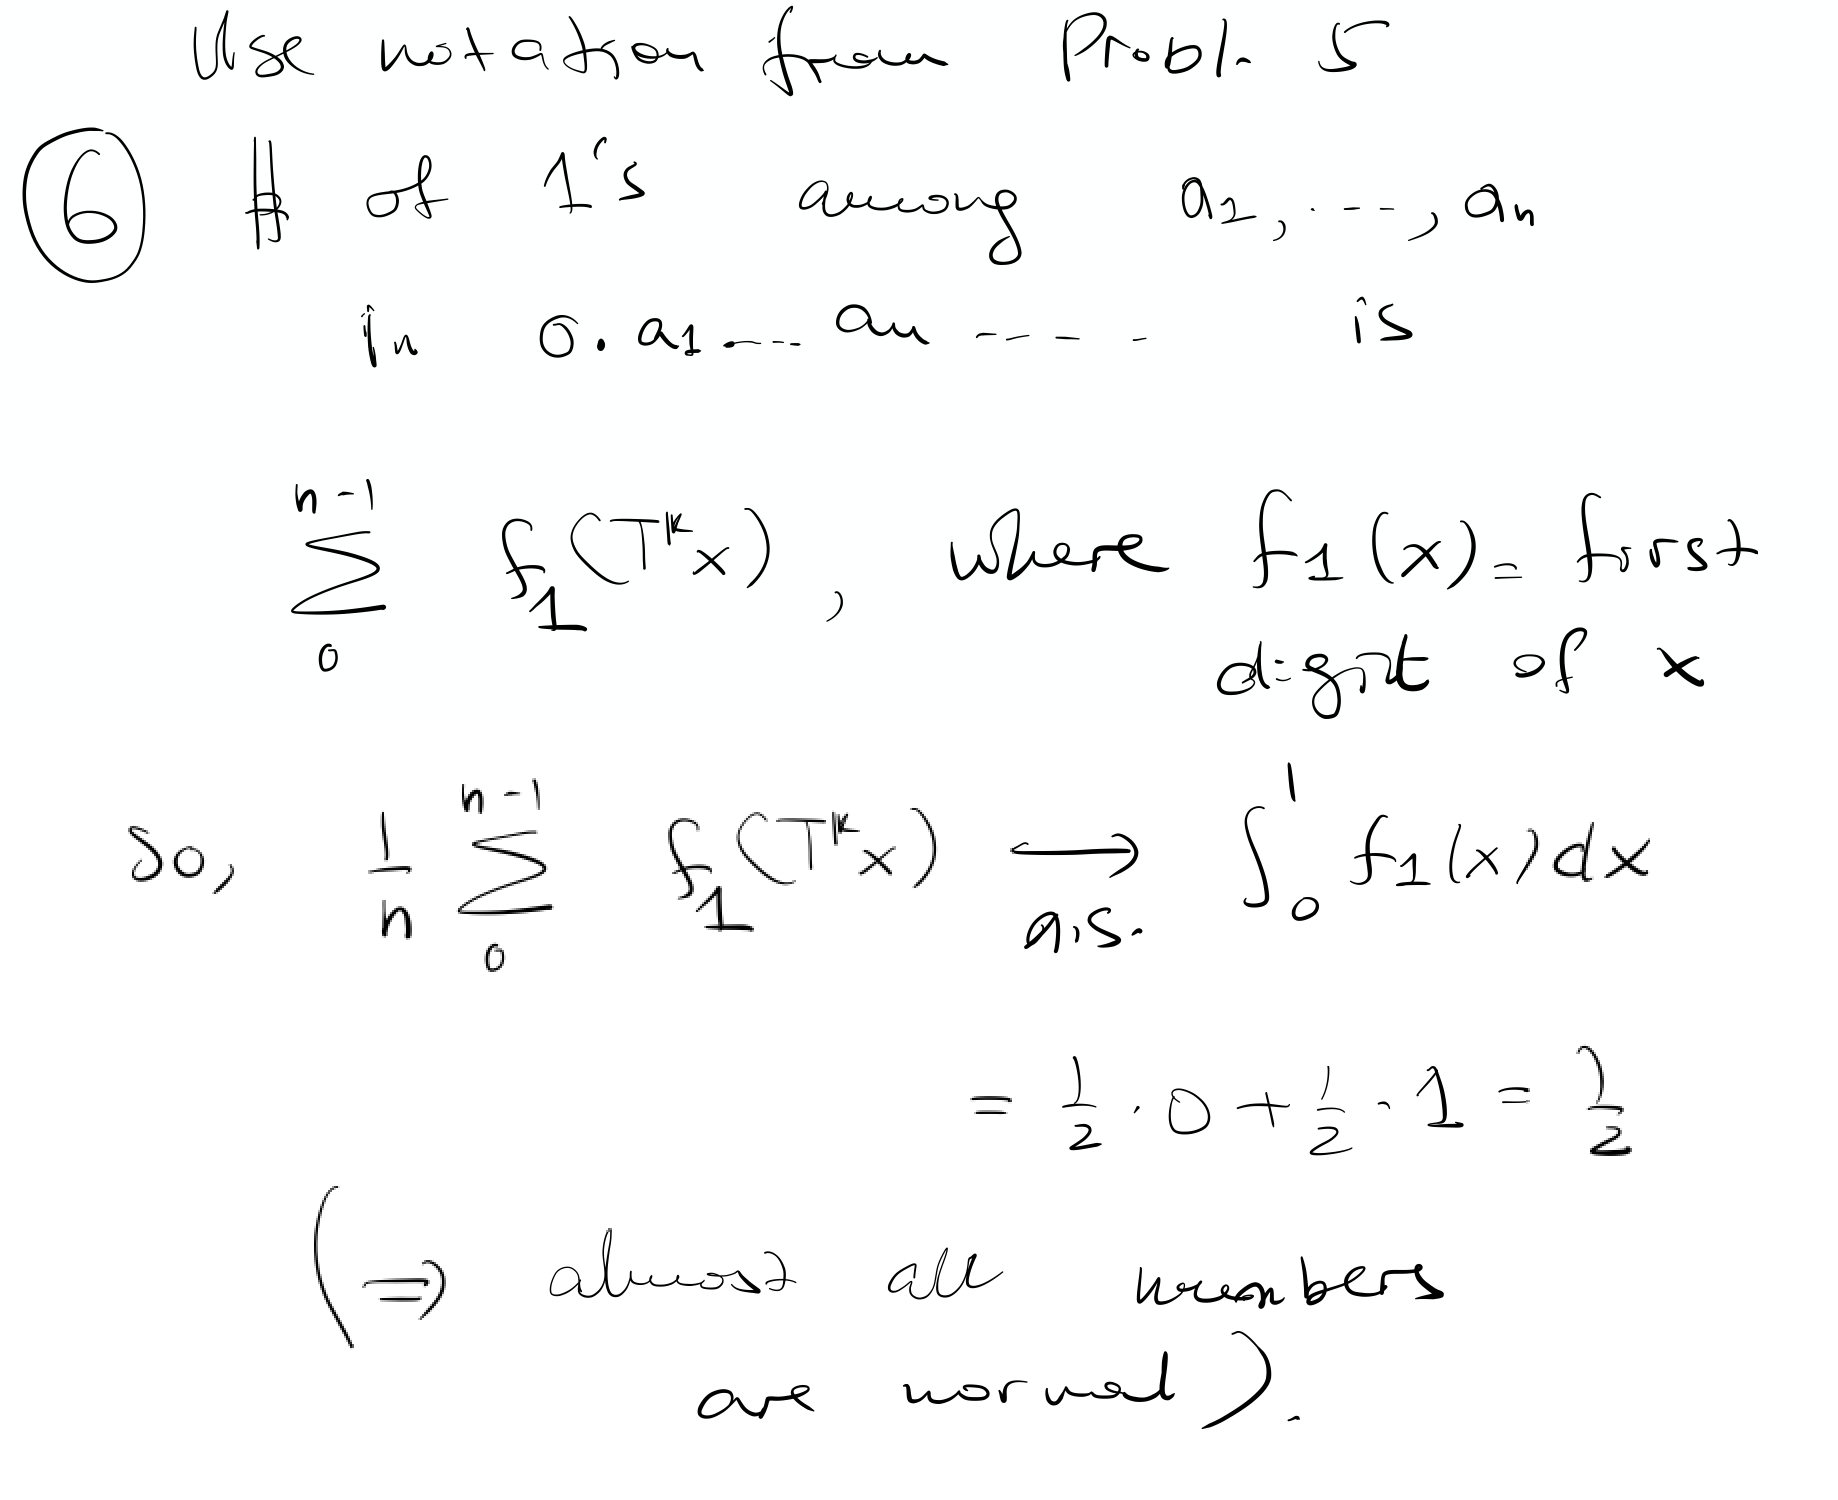 Use notation from Probl. 5
⑥ # of 1's among a₁, ..., aₙ
in 0.a₁...aₙ..... is
∑₀ⁿ⁻¹ f₁(Tᵏx), where f₁(x) = first
digit of x
So, 1/n ∑₀ⁿ⁻¹ f₁(Tᵏx) ⟶ a.s. ∫₀¹ f₁(x)dx
= 1/2 · 0 + 1/2 · 1 = 1/2
(⇒ almost all numbers
are normal).